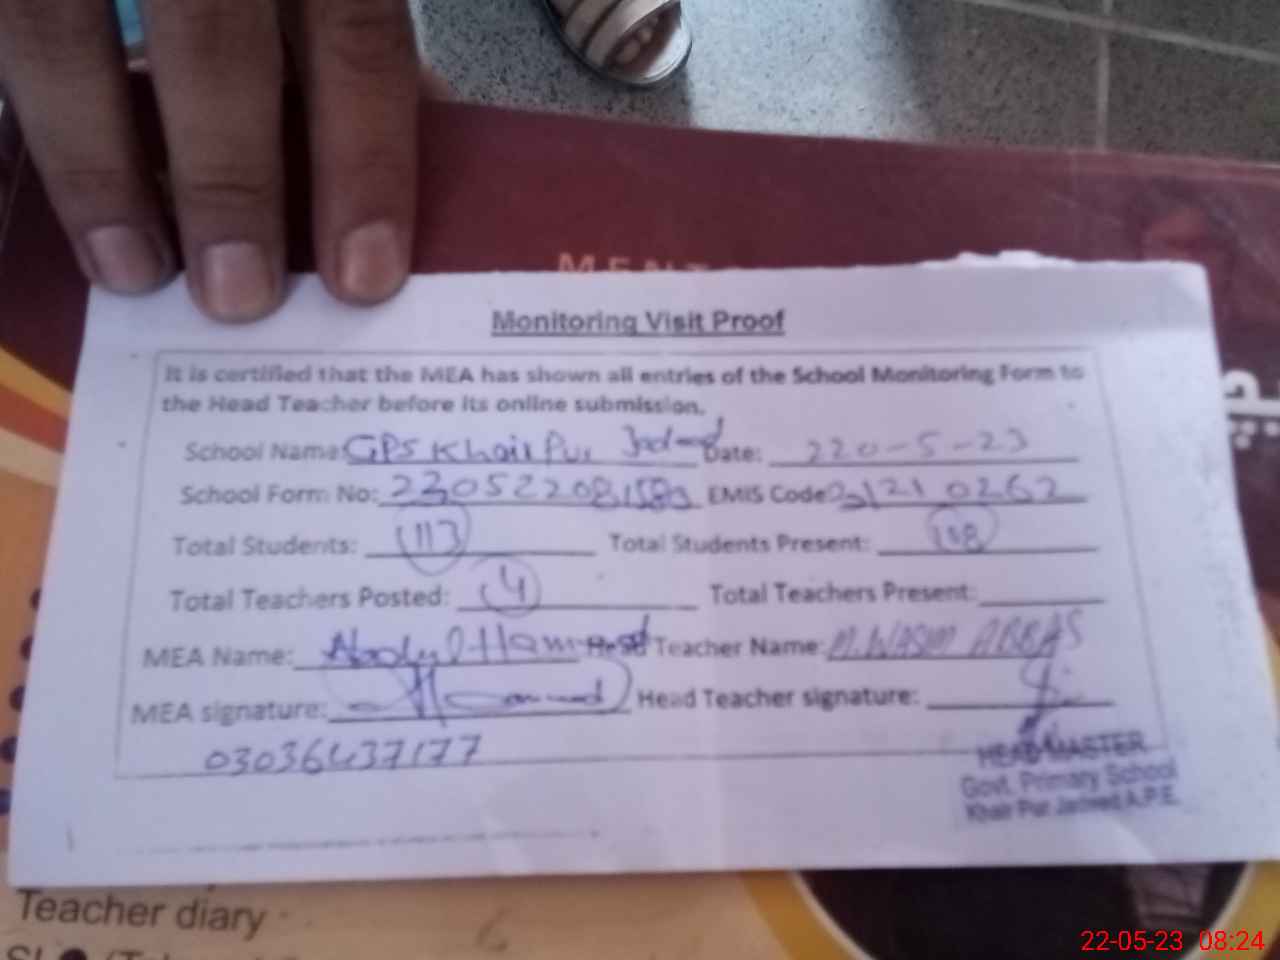 MENT
Monitoring Visit Proof
It is certified that the MEA has shown all entries of the School Monitoring Form to
the Head Teacher before its online submission.
School Name: GPS Khair Pur Jaded Date: 220-5-23
School Form No: EMIS Code
Total Students: 113 Total Students Present: 108
Total Teachers Posted: 4 Total Teachers Present:
MEA Name: Abdul Hameed Head Teacher Name: M. WASIM ABBAS
MEA signature: Head Teacher signature:
03036437177
HEAD MASTER
Govt. Primary School
Khair Pur Jadeed A.P.E.
Teacher diary
22-05-23 08:24